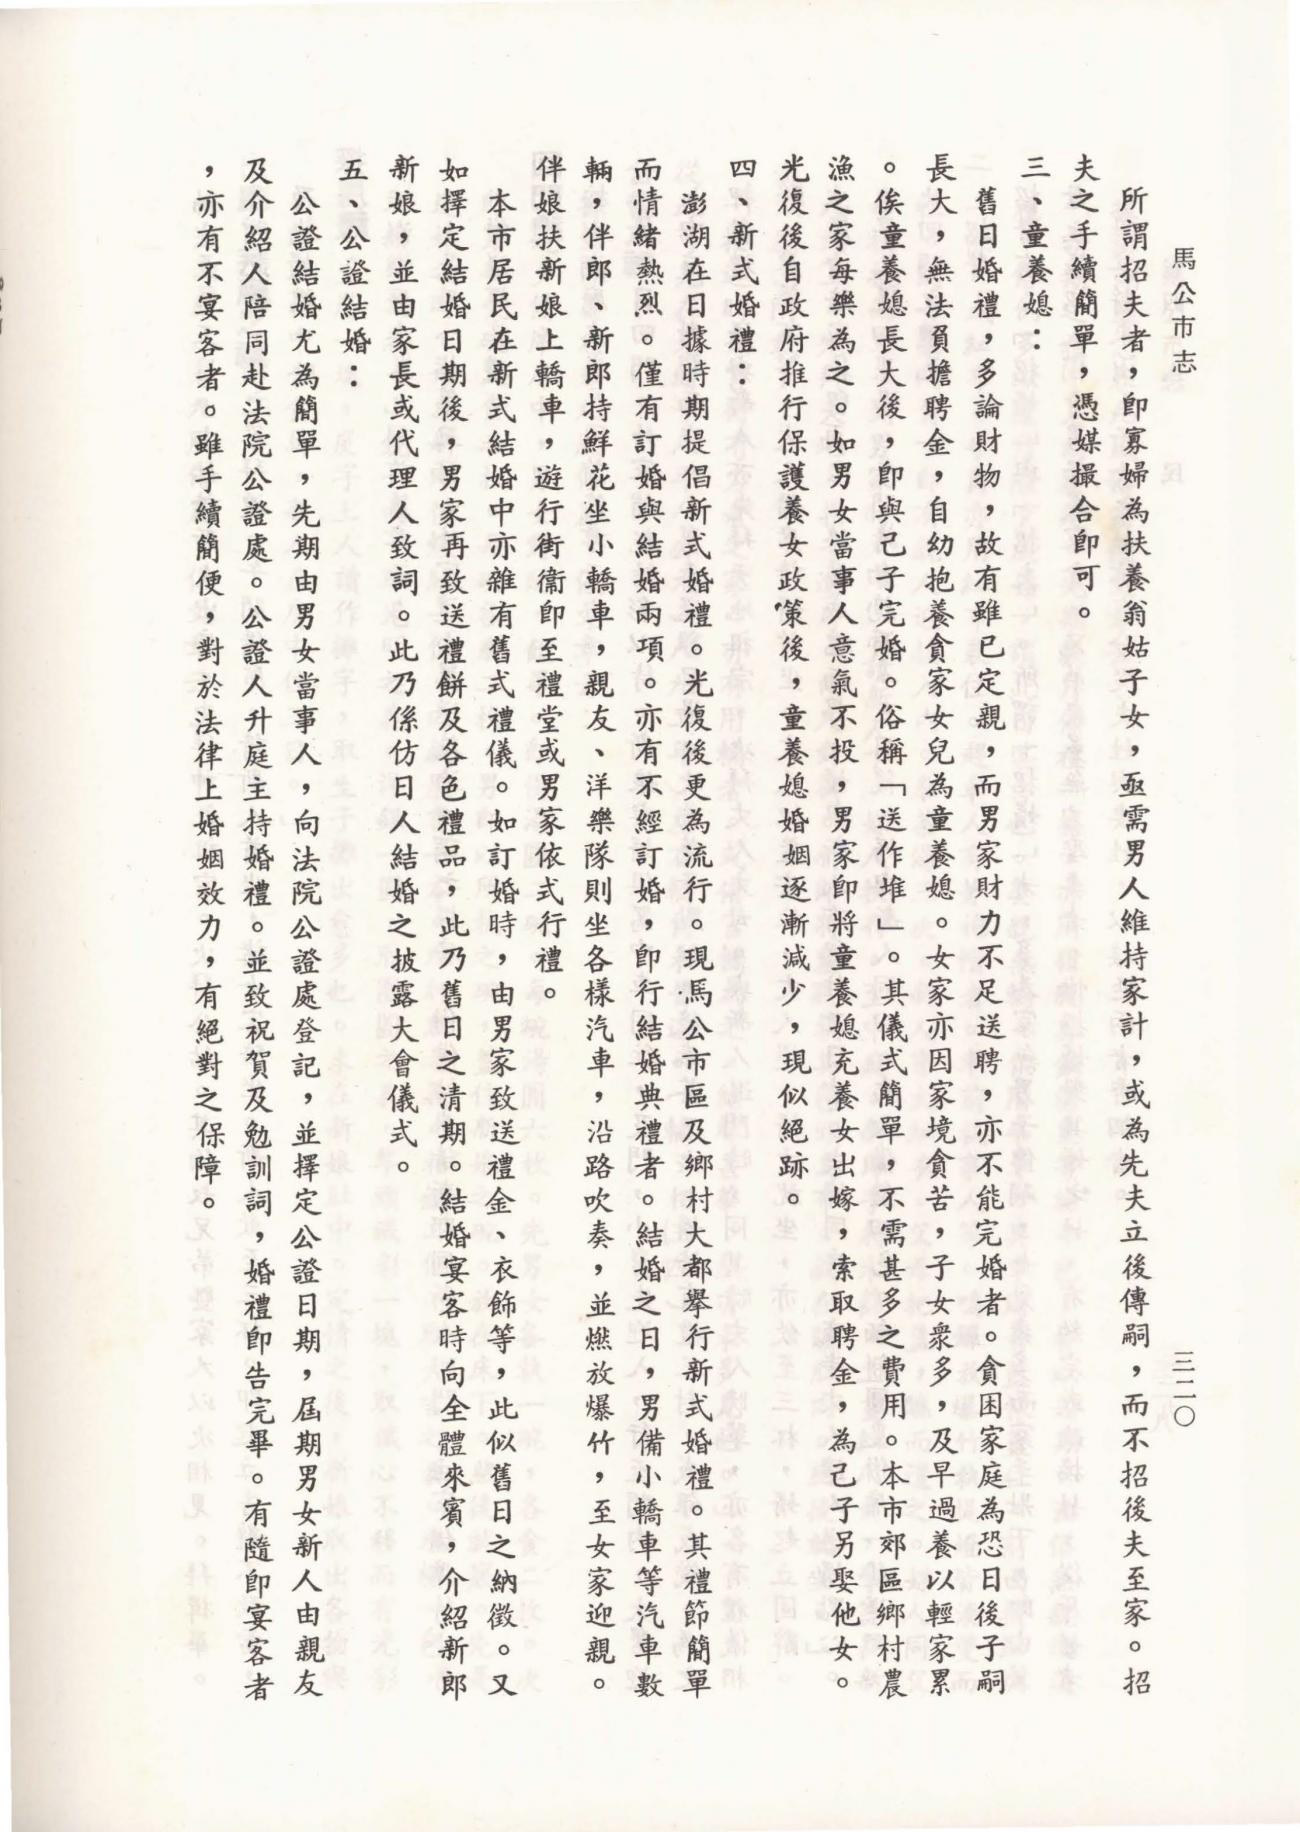 馬公市志
三二〇
所謂招夫者，即寡婦為扶養翁姑子女，亟需男人維持家計，或為先夫立後傳嗣，而不招後夫至家。招
夫之手續簡單，憑媒撮合即可。
三、童養媳：
舊日婚禮，多論財物，故有雖已定親，而男家財力不足送聘，亦不能完婚者。貧困家庭為恐日後子嗣
長大，無法負擔聘金，自幼抱養貧家女兒為童養媳。女家亦因家境貧苦，子女衆多，及早過養以輕家累
。俟童養媳長大後，即與己子完婚。俗稱「送作堆」。其儀式簡單，不需甚多之費用。本市郊區鄉村農
漁之家每樂為之。如男女當事人意氣不投，男家即將童養媳充養女出嫁，索取聘金，為己子另娶他女。
光復後自政府推行保護養女政策後，童養媳婚姻逐漸減少，現似絕跡。
四、新式婚禮：
澎湖在日據時期提倡新式婚禮。光復後更為流行。現馬公市區及鄉村大都舉行新式婚禮。其禮節簡單
而情緒熱烈。僅有訂婚與結婚兩項。亦有不經訂婚，即行結婚典禮者。結婚之日，男備小轎車等汽車數
輛，伴郎、新郎持鮮花坐小轎車，親友、洋樂隊則坐各樣汽車，沿路吹奏，並燃放爆竹，至女家迎親。
伴娘扶新娘上轎車，遊行街衢即至禮堂或男家依式行禮。
本市居民在新式結婚中亦雜有舊式禮儀。如訂婚時，由男家致送禮金、衣飾等，此似舊日之納徵。又
如擇定結婚日期後，男家再致送禮餅及各色禮品，此乃舊日之清期。結婚宴客時向全體來賓，介紹新郎
新娘，並由家長或代理人致詞。此乃係仿日人結婚之披露大會儀式。
五、公證結婚：
公證結婚尤為簡單，先期由男女當事人，向法院公證處登記，並擇定公證日期，屆期男女新人由親友
及介紹人陪同赴法院公證處。公證人升庭主持婚禮。並致祝賀及勉訓詞，婚禮即告完畢。有隨即宴客者
，亦有不宴客者。雖手續簡便，對於法律上婚姻效力，有絕對之保障。